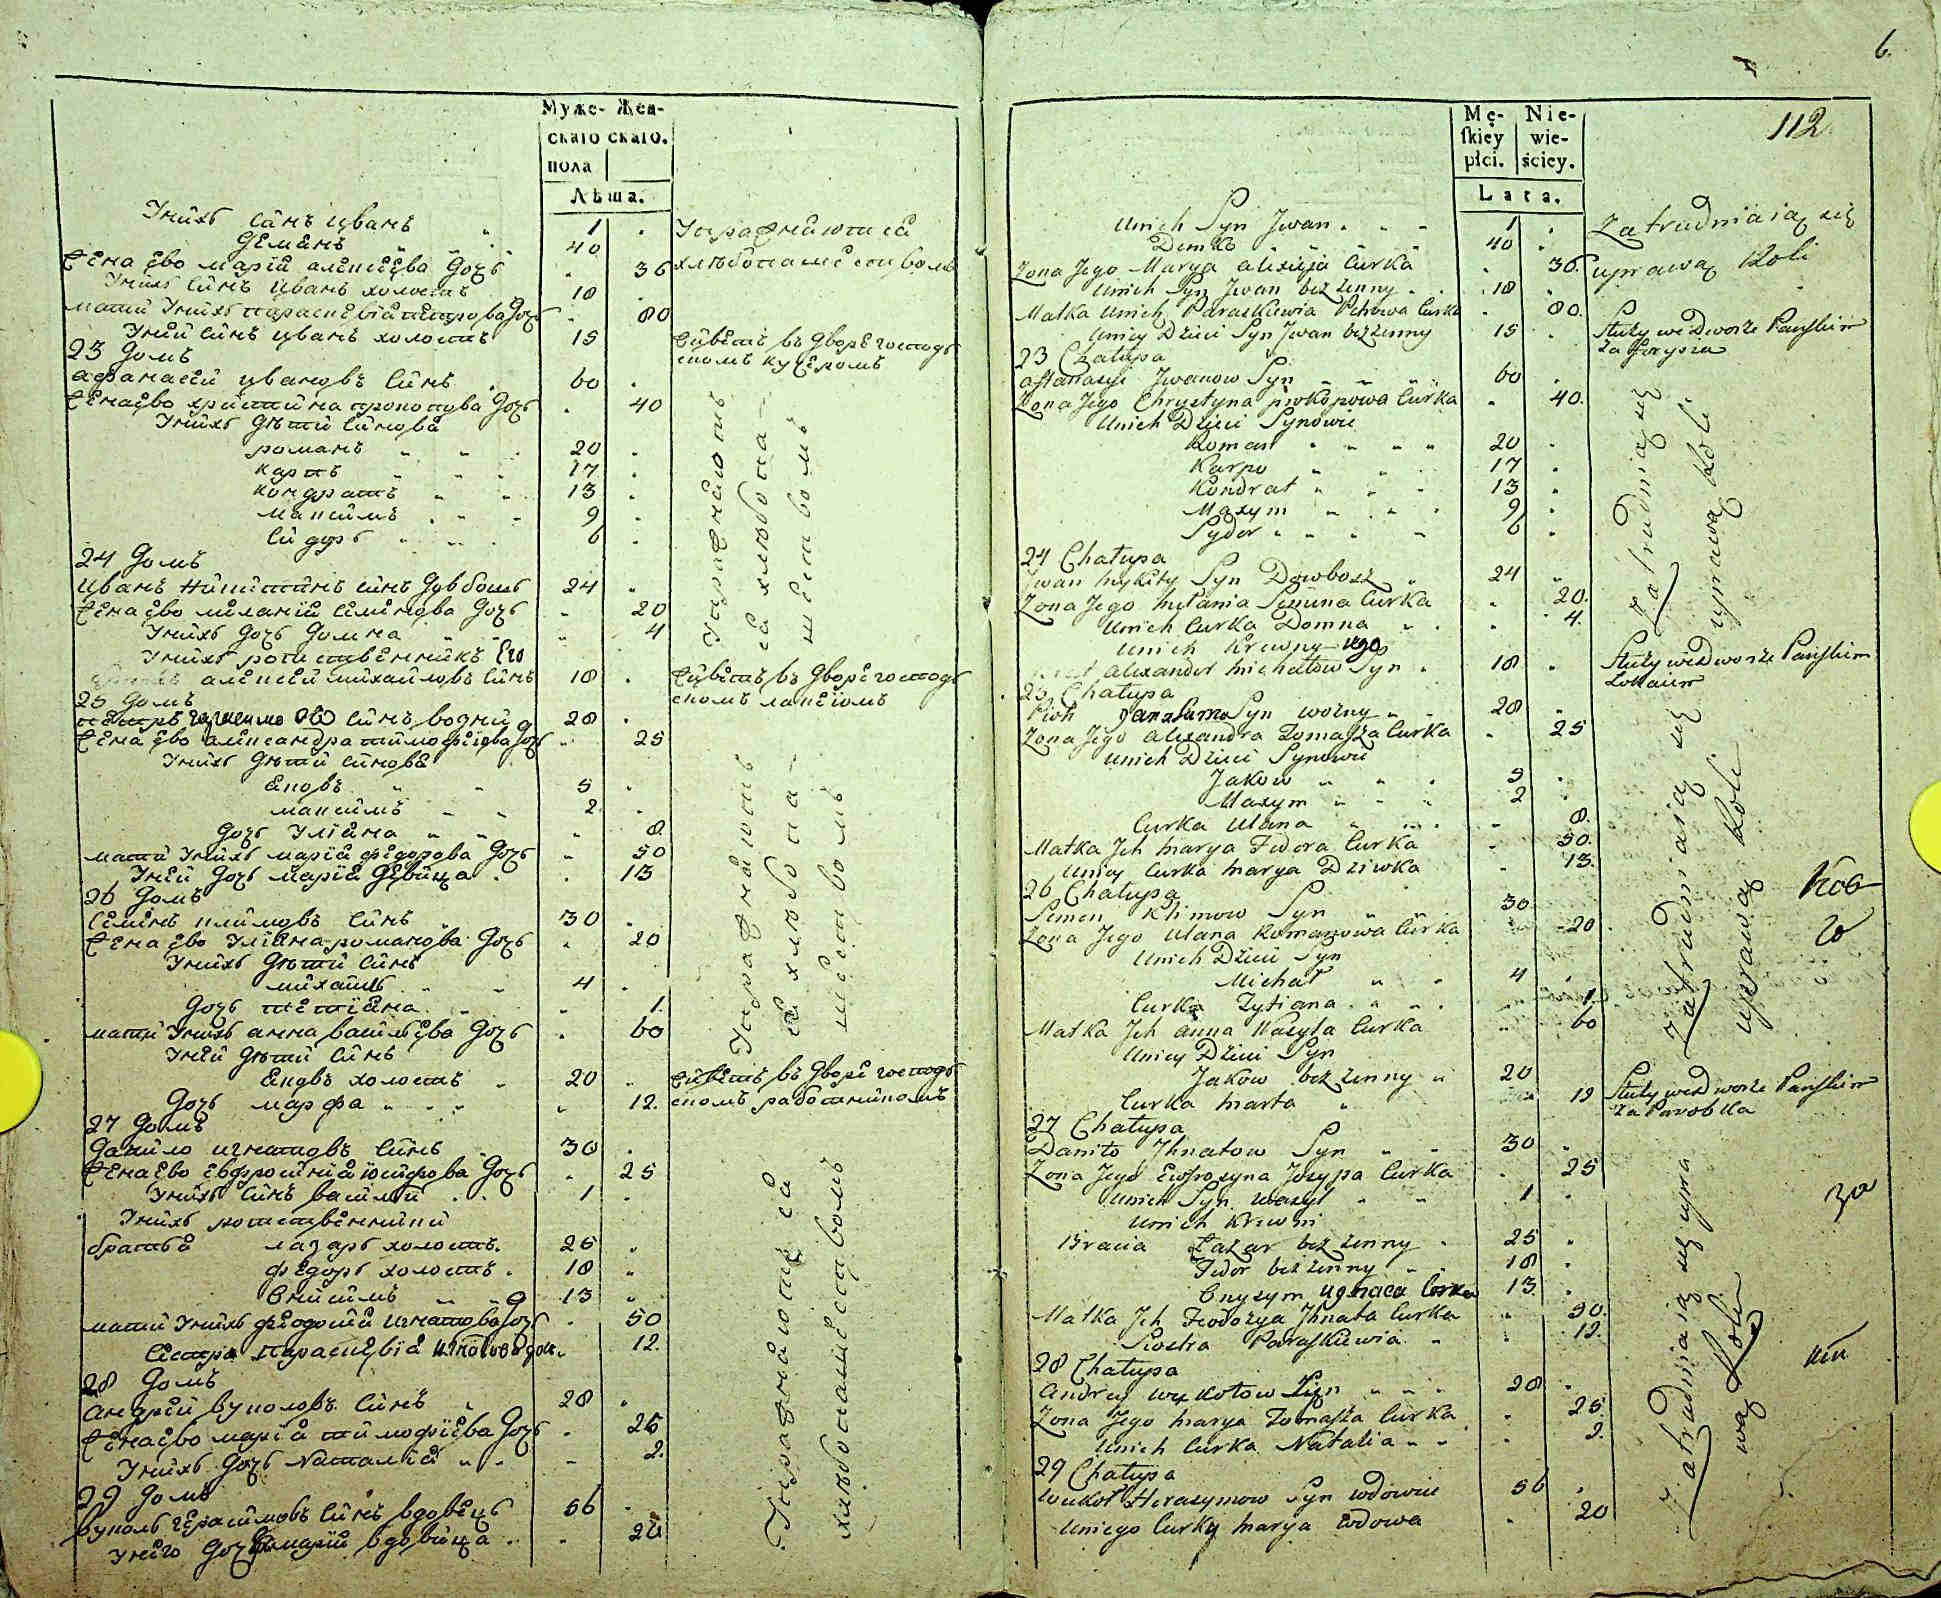 Муже- Жен-
скаго скаго.
пола
Лѣта.
Унихъ Синъ Иванъ 1
Деменъ 40
Жена Ево Мария Алексеева Дочь 36
Унихъ Синъ Иванъ холостъ 18
Мати Унихъ Параскевия Петрова Дочь 80
Уней Синъ Иванъ холостъ 15
23 Домъ
Афанасей Ивановъ Синъ 60
Жена Ево Христина Прокопова Дочь 40
Унихъ Дѣти Синове
Романъ 20
Карпъ 17
Кондратъ 13
Максимъ 9
Сидоръ 6
24 Домъ
Иванъ Никитинъ Синъ Довбошъ 24
Жена Ево Мелания Семенова Дочь 20
Унихъ Дочь Домна 4
Унихъ родственникъ Его
Алексей Михайловъ Синъ 18
25 Домъ
Петръ Синъ возний 28
Жена Ево Александра Тимофеева Дочь 25
Унихъ Дѣти Синове
Яковъ 5
Максимъ 2
Дочь Улияна 8
Мати Унихъ Мария Федорова Дочь 50
Уней Дочь Мария Девица 13
26 Домъ
Семенъ Климовъ Синъ 30
Жена Ево Улияна Романова Дочь 20
Унихъ Дѣти Синъ
Михаилъ 4
Дочь Тетияна 1
Мати Унихъ Анна Василева Дочь 60
Уней Дѣти Синъ
Яковъ холостъ 20
Дочь Марфа 12
27 Домъ
Данило Игнатовъ Синъ 30
Жена Ево Евфросиния Иосифова Дочь 25
Унихъ Синъ Василий 1
Унихъ родственники
братья Лазаръ холостъ 25
Федоръ холостъ 18
Онисимъ 13
Мати Унихъ Феодосия Игнатова Дочь 50
Сестра Параскевия 12
28 Домъ
Андрей Вуколовъ Синъ 28
Жена Ево Мария Тимофеева Дочь 25
Унихъ Дочь Наталия 2
29 Домъ
Вуколъ Герасимовъ Синъ вдовецъ 56
Унего Дочь Мария вдовица 20
Упражняются
хлѣбопашествомъ
Живетъ въ Дворе господ
скомъ кучеромъ
Упражняют
ся хлѣбопа
шествомъ
Живетъ въ Дворе господ
скомъ лакеюмъ
Упражняют
ся хлѣбопа
шествомъ
Живетъ въ Дворе господ
скомъ работникомъ
Упражняются
хлѣбопашествомъ
6.
112
Mę- Nie-
skiey wie-
płci. ściey.
Lata.
Unich Syn Jwan 1
Demko 40
Zona Jego Marya Alexieja Curka 36
Unich Syn Jwan bezzenny 18
Matka Unich Paraskiewia Petrowa Curka 80
Uniey Dzieci Syn Jwan bezzenny 15
23 Chałupa
Afanasyi Jwanow Syn 60
Zona Jego Chrystyna Prokopowa Curka 40
Unich Dzieci Synowie
Roman 20
Karpo 17
Kondrat 13
Maxym 9
Sydor 6
24 Chałupa
Jwan Mykity Syn Dowbosz 24
Zona Jego Mełania Semena Curka 20
Unich Curka Domna 4
Unich Krewny iego
Alexander Michałow Syn 18
25 Chałupa
Piotr Syn wozny 28
Zona Jego Alexandra Tomasza Curka 25
Unich Dzieci Synowie
Jakow 5
Maxym 2
Curka Ulana 8
Matka Jch Marya Fedora Curka 50
Uniey Curka Marya Dziwka 13
26 Chałupa
Semen Klimow Syn 30
Zona Jego Ulana Romanowa Curka 20
Unich Dzieci Syn
Michał 4
Curka Tytiana 1
Matka Jch Anna Wasyla Curka 60
Uniey Dzieci Syn
Jakow bezzenny 20
Curka Marta 12
27 Chałupa
Daniło Jhnatow Syn 30
Zona Jego Ewfrosyna Josypa Curka 25
Unich Syn Wasyl 1
Unich Krewni
Bracia Łazar bezzenny 25
Fedor bezzenny 18
Onysym 13
Matka Jch Feodozya Jhnata Curka 50
Siostra Paraskiewia 12
28 Chałupa
Andrey Wukołow Syn 28
Zona Jego Marya Tomasza Curka 25
Unich Curka Natalia 2
29 Chałupa
Wukoł Herasymow Syn wdowiec 56
Uniego Curka Marya wdowa 20
Zatrudniaią się
uprawą Roli
Służy we Dworze Pańskim
za Forysia
Zatrudniaią się
uprawą Roli
Służy we Dworze Pańskim
Lokaiem
Zatrudniaią się
uprawą Roli
Służy we Dworze Pańskim
za Parobka
Zatrudniaią się upra
wą Roli